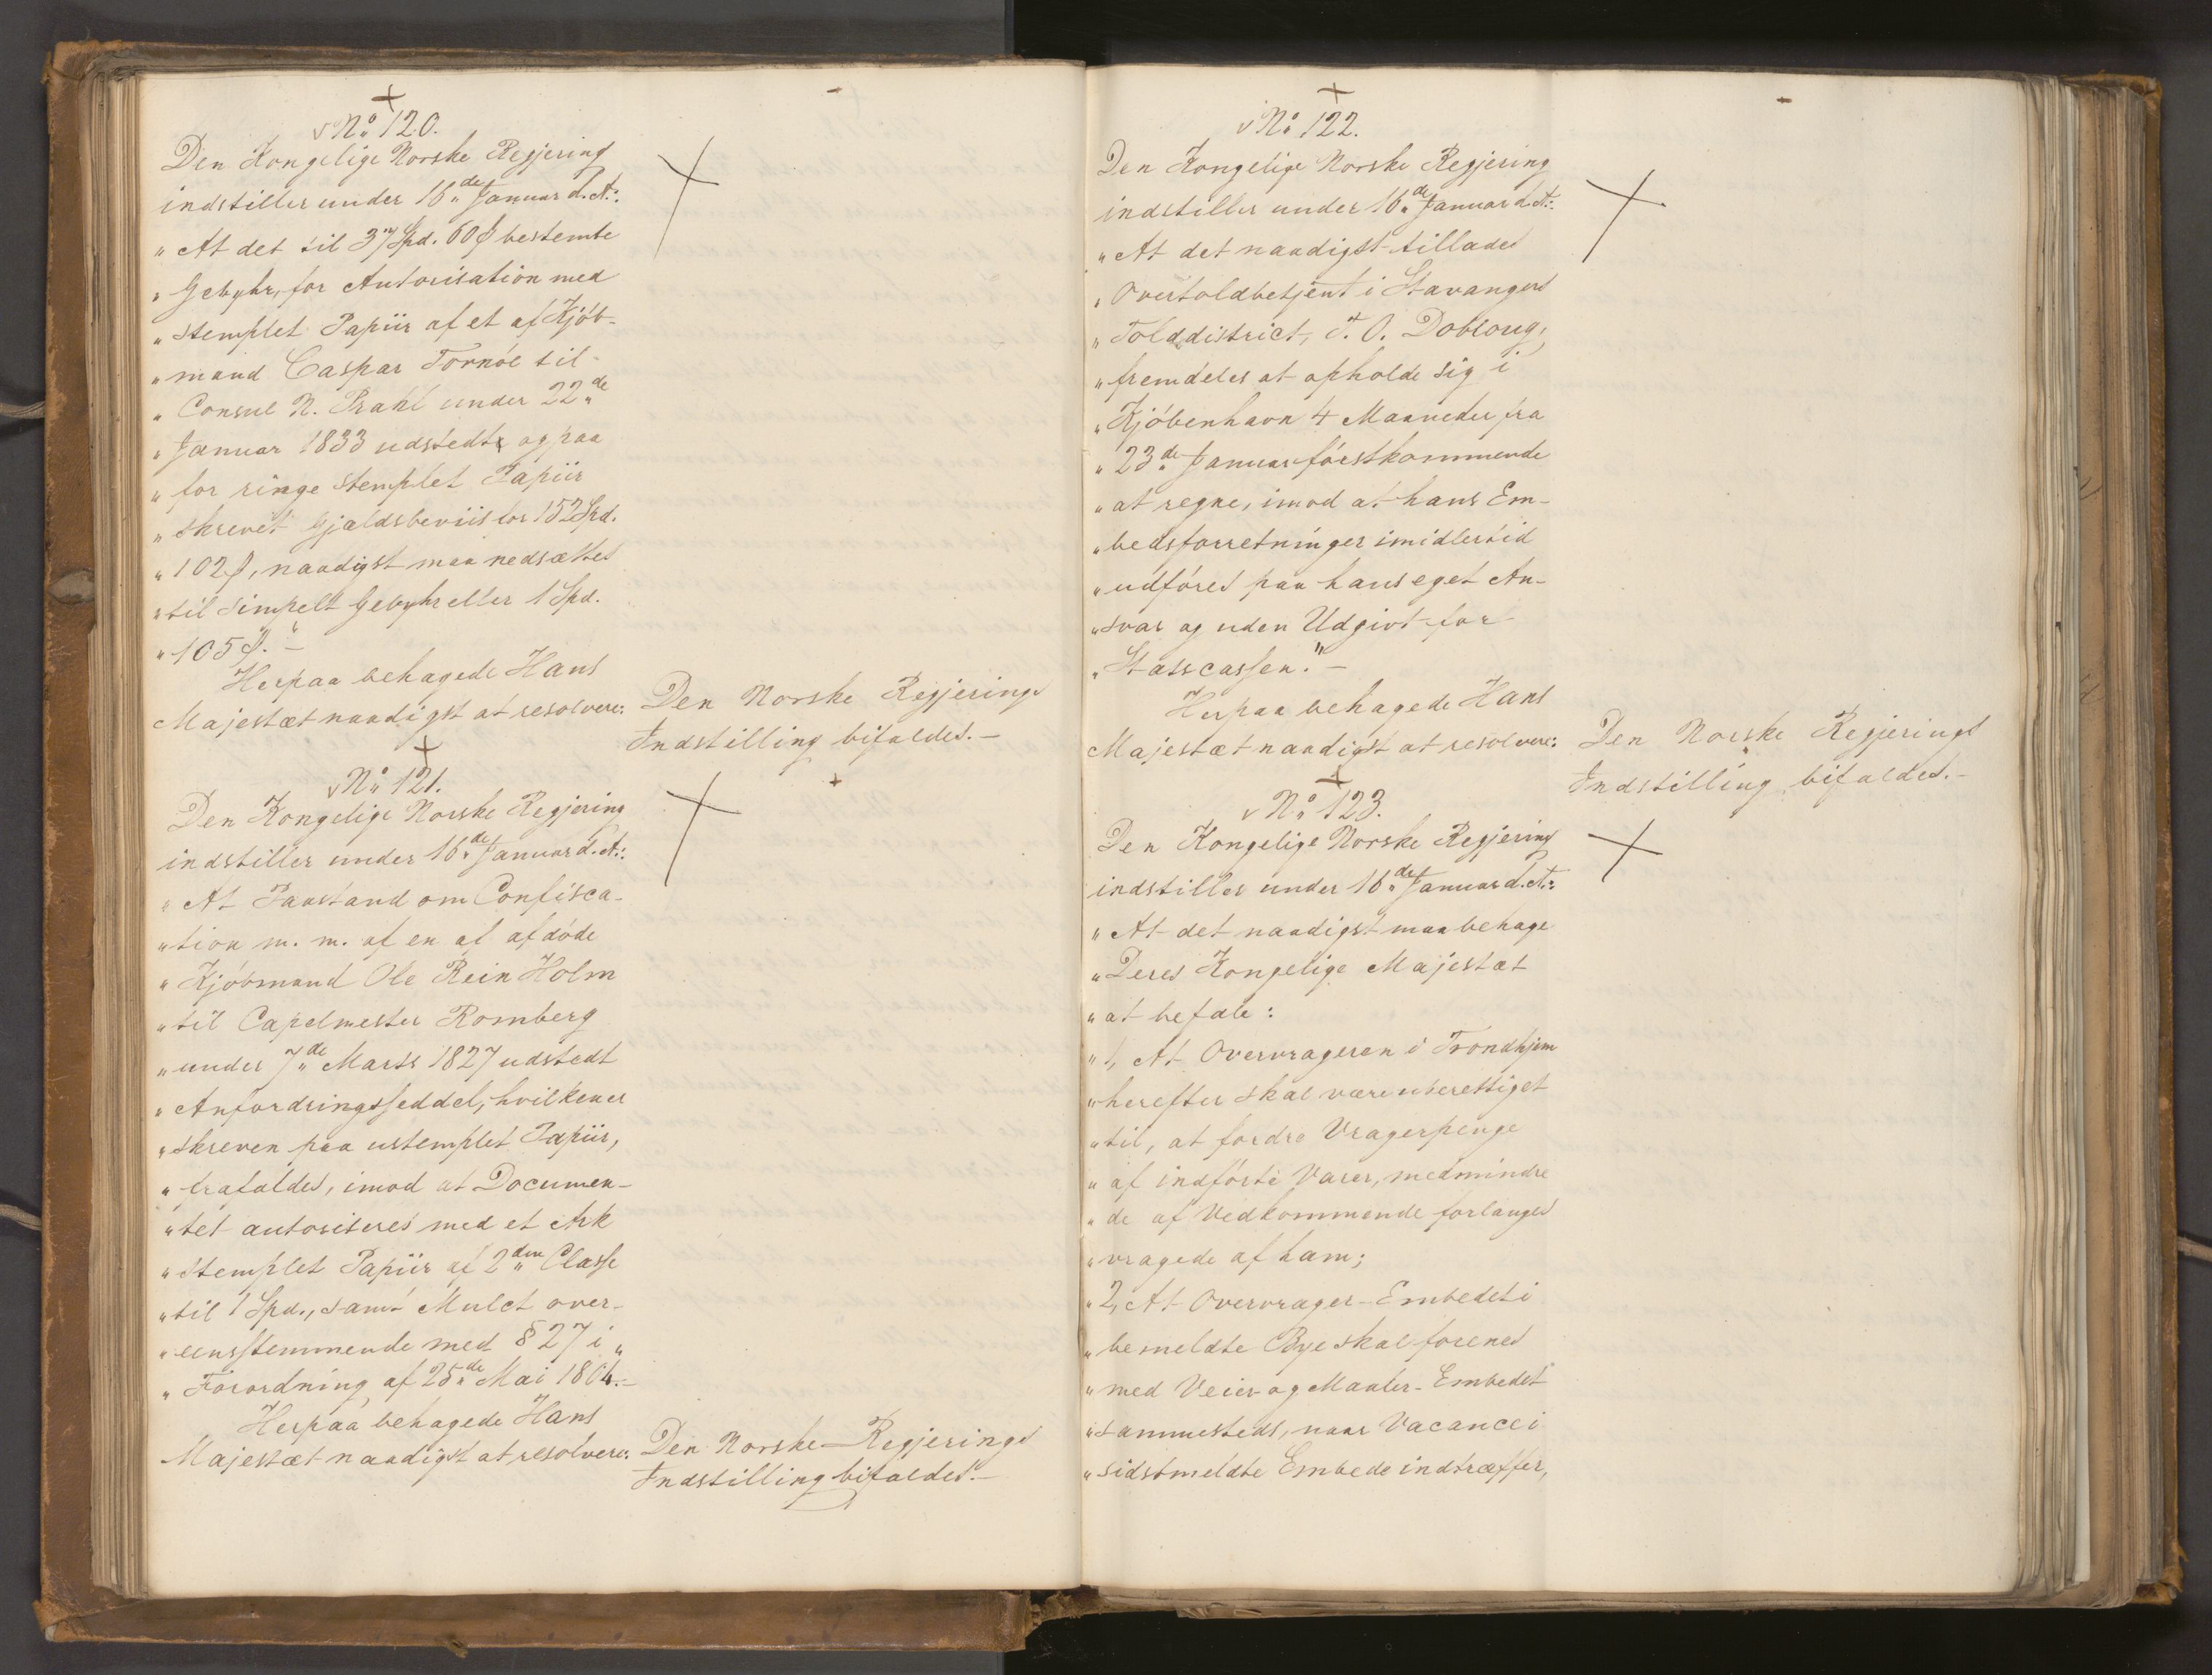 No 120.
Den Kongelige Norske Regjering
indstiller under 16de Januar d. A.:
„At det til 37 Spd. 60 ß bestemte
„Gebyhr, for Autorisation med
„stemplet Papiir af et af Kjöb-
„mand Caspar Tornöe til
„Consul N. Prahl under 22de
„Januar 1833 udstedt, og paa
„for ringe stemplet Papiir
„skrevet Gjældsbeviis for 152 Spd.
„102 ß, naadigst maa nedsættes
„til simpelt Gebyhr eller 1 Spd.
„105 ß." –
Herpaa behagede Hans
Majestæt naadigst at resolvere:
Den Norske Regjerings
Indstilling bifaldes. –
No 121.
Den Kongelige Norske Regjering
indstiller under 16de Januar d. A.:
„At Paastand om Confisca-
„tion m. m. af en af afdöde
„Kjöbmand Ole Rein Holm
„til Capelmester Romberg
„under 7de Marts 1827 udstedt
„Anfordringsseddel, hvilken er
„skreven paa ustemplet Papiir,
„frafaldes, imod at Documen-
„tet autoriseres med et Ark
„stemplet Papiir af 2den Classe
„til 1 Spd., samt Mulct over-
„eensstemmende med § 27 i
„Forordning af 25de Mai 1804." –
Herpaa behagede Hans
Majestæt naadigst at resolvere:
Den Norske Regjerings
Indstilling bifaldes. –
No 122.
Den Kongelige Norske Regjering
indstiller under 16de Januar d. A.:
„At det naadigst tillades
„Overtoldbetjent i Stavangers
„Tolddistrict, T. O. Dobloug,
„fremdeles at opholde sig i
„Kjöbenhavn 4 Maaneder fra
„23de Januar förstkommende
„at regne, imod at hans Em-
„bedsforretninger imidlertid
„udföres paa hans eget An-
„svar og uden Udgivt for
„Statscassen." –
Herpaa behagede Hans
Majestæt naadigst at resolvere:
Den Norske Regjerings
Indstilling bifaldes. –
No 123.
Den Kongelige Norske Regjering
indstiller under 16de Januar d. A.:
„At det naadigst maa behage
„Deres Kongelige Majestæt
„at befale:
„1, At Overvrageren i Trondhjem
„herefter skal være uberettiget
„til, at fordre Vragerpenge
„af indförte Varer, medmindre
„de af Vedkommende forlanges
„vragede af ham;
„2, At Overvrager-Embedet i
„bemeldte Bye skal forenes
„med Veier- og Maaler-Embedet
„sammesteds, naar Vacance i
„sidstmeldte Embede indtræffer,